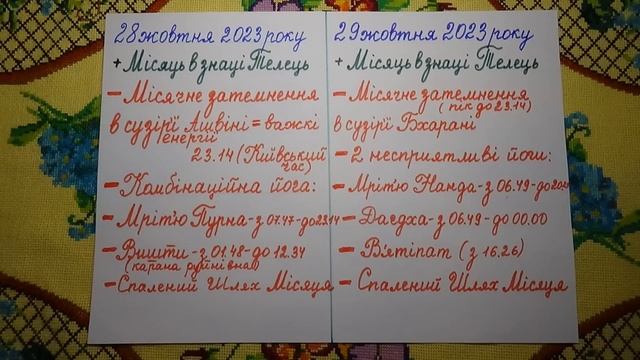 28 жовтня 2023 року
+ Місяць в знаці Телець
- Місячне затемнення
в сузірї Ашвіні = важкі
енергії
23.14 (Київський
час)
- Комбінаційна йога:
- Мрітю Пурна - з 07.47 - до 23.14
- Вишти - з 01.48 - до 12.34
(карана руйнівна)
- Спалений Шлях Місяця
29 жовтня 2023 року
+ Місяць в знаці Телець
- Місячне затемнення
(пік до 23.14)
в сузірї Бхарані
- 2 несприятливі йоги:
- Мрітю Нанда - з 06.49 - до
- Дагдха - з 06.49 - до 00.00
- Вʼятіпат (з 16.26)
- Спалений Шлях Місяця